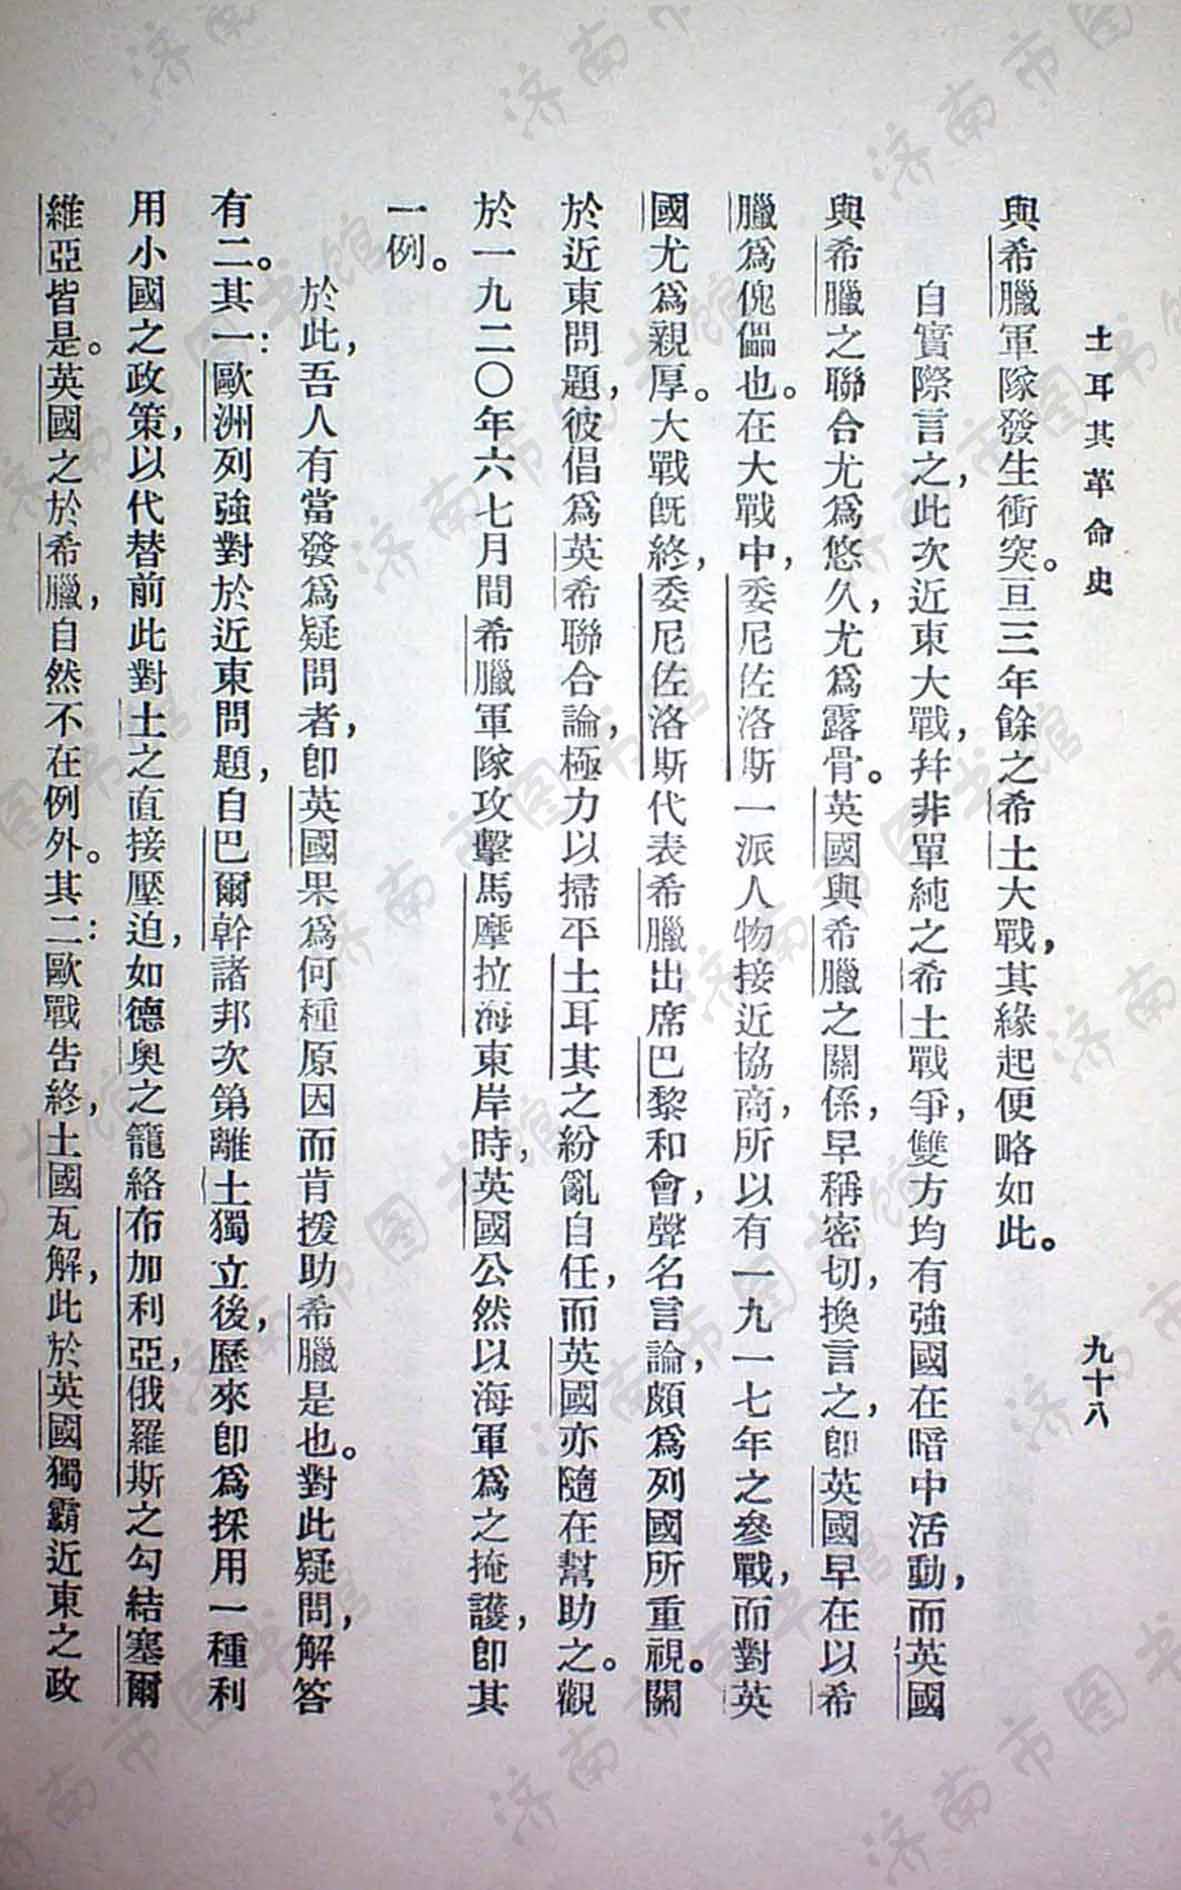 土耳其革命史
九十八
與希臘軍隊發生衝突。亘三年餘之希土大戰，其緣起便略如此。
自實際言之，此次近東大戰，幷非單純之希土戰爭，雙方均有強國在暗中活動，而英國
與希臘之聯合尤爲悠久，尤爲露骨。英國與希臘之關係，早稱密切，換言之，卽英國早在以希
臘爲傀儡也。在大戰中，委尼佐洛斯一派人物接近協商，所以有一九一七年之參戰，而對英
國尤爲親厚。大戰旣終，委尼佐洛斯代表希臘出席巴黎和會，聲名言論，頗爲列國所重視。關
於近東問題，彼倡爲英希聯合論，極力以掃平土耳其之紛亂自任，而英國亦隨在幫助之。觀
於一九二〇年六七月間希臘軍隊攻擊馬摩拉海東岸時，英國公然以海軍爲之掩護，卽其
一例。
於此，吾人有當發爲疑問者，卽英國果爲何種原因而肯援助希臘是也。對此疑問，解答
有二。其一：歐洲列強對於近東問題，自巴爾幹諸邦次第離土獨立後，歷來卽爲採用一種利
用小國之政策，以代替前此對土之直接壓迫，如德奧之籠絡布加利亞，俄羅斯之勾結塞爾
維亞皆是。英國之於希臘，自然不在例外。其二：歐戰告終，土國瓦解，此於英國獨霸近東之政
济南市图书馆